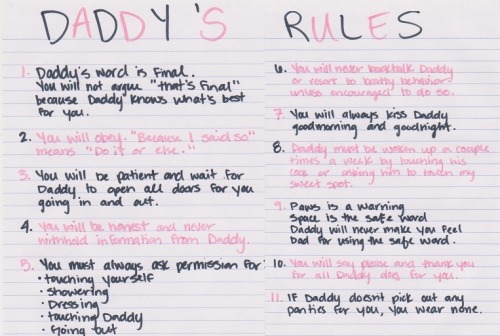 DADDY'S RULES
1. Daddy's word is final.
You will not argue "that's final"
because Daddy knows what's best
for you.
2. You will obey. "Because I said so"
means "Do it or else."
3. You will be patient and wait for
Daddy to open all doors for you
going in and out.
4. You will be honest and never
withhold information from Daddy.
5. You must always ask permission for:
• touching yourself
• showering
• Dressing
• touching Daddy
• Going out
6. You will never backtalk Daddy
or resort to bratty behavior
unless encouraged to do so.
7. You will always kiss Daddy
goodmorning and goodnight.
8. Daddy must be woken up a couple
times a week by touching his
cock or asking him to touch my
sweet spot.
9. Paws is a warning
Space is the safe word
Daddy will never make you feel
bad for using the safe word.
10. You will say please and thank you
for all Daddy does for you.
11. If Daddy doesn't pick out any
panties for you, you wear none.